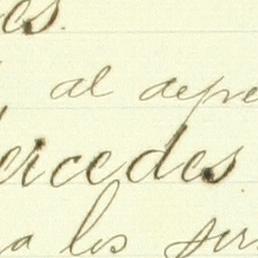 es.
al depre
ercedes
a los ser